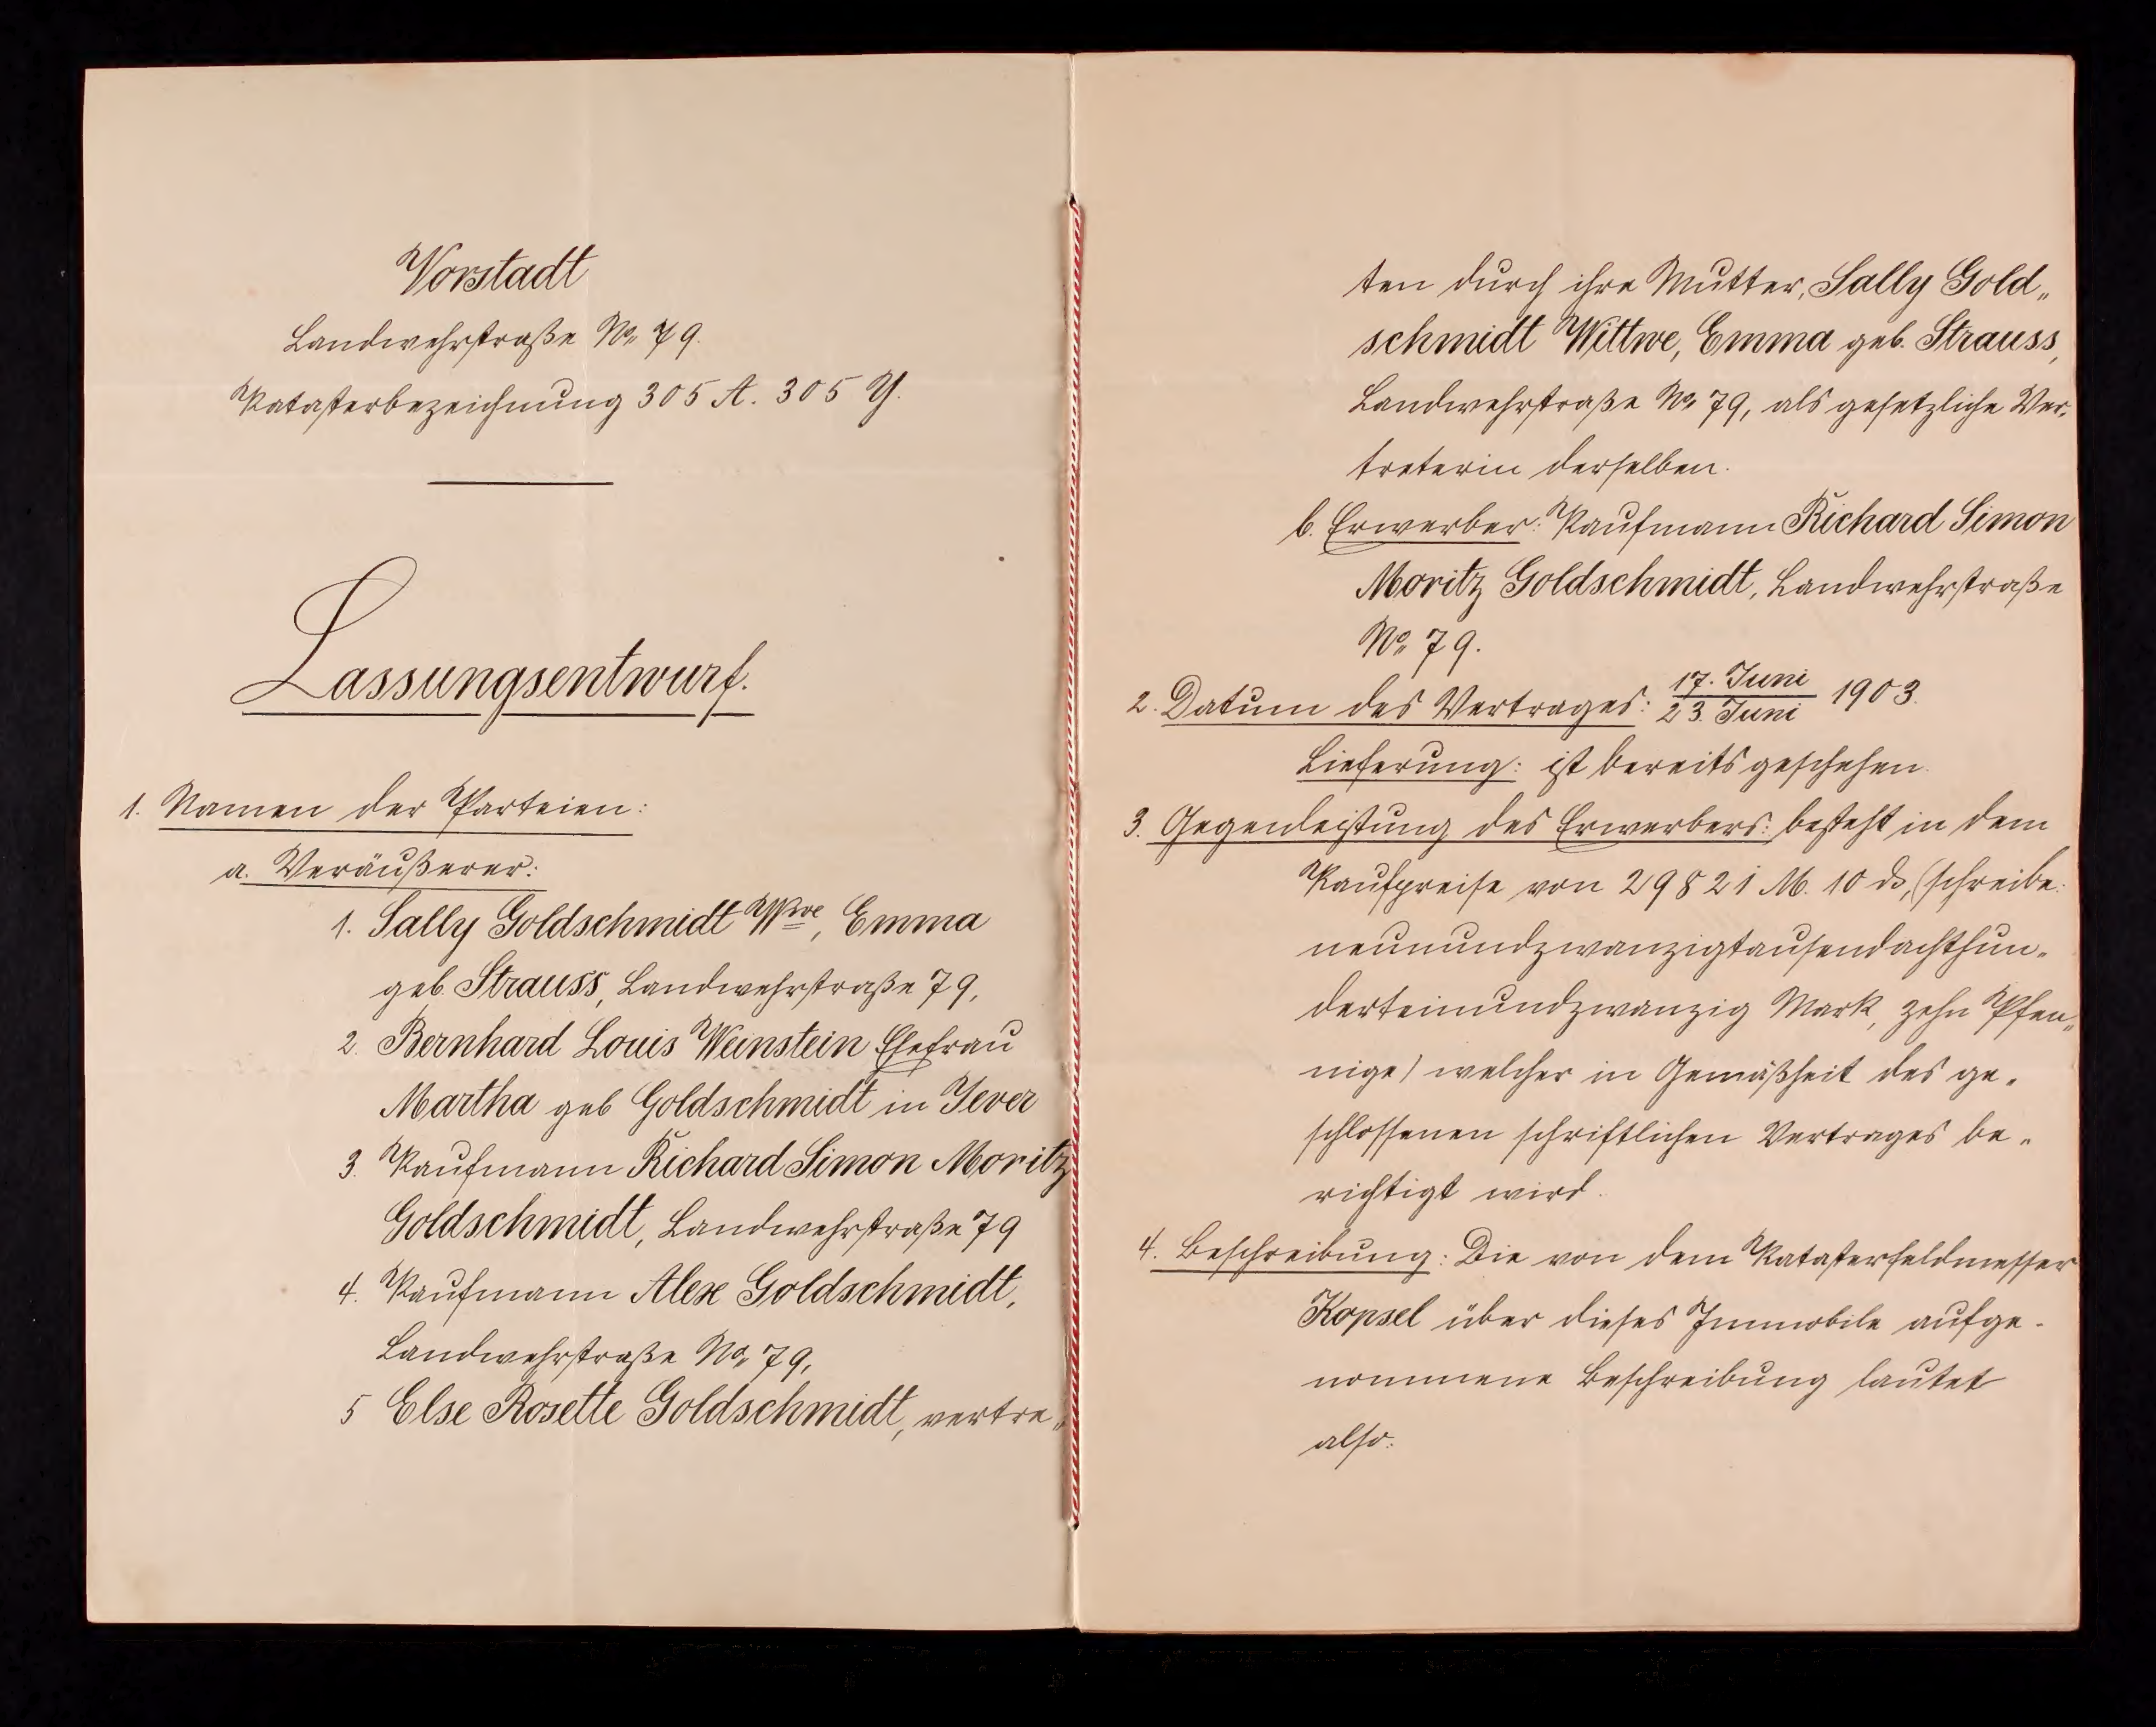 Vorstadt
Landwehrstraße No. 79.
Katasterbezeichnung 305 A. 305 Y.
Lassungsentwurf.
1. Namen der Parteien:
a. Veräußerer:
1. Sally Goldschmidt Wwe, Emma
geb. Strauss, Landwehrstraße 79,
2. Bernhard Louis Weinstein Ehefrau
Martha geb Goldschmidt in Jever
3. Kaufmann Richard Simon Moritz
Goldschmidt, Landwehrstraße 79
4. Kaufmann Alex Goldschmidt,
Landwehrstraße No. 79,
5 Else Rosette Goldschmidt, vertre„
ten durch ihre Mutter, Sally Gold„
schmidt Wittwe, Emma geb. Strauss,
Landwehrstraße No. 79, als gesetzliche Ver„
treterin derselben.
b. Erwerber: Kaufmann Richard Simon
Moritz Goldschmidt, Landwehrstraße
No. 79.
2. Datum des Vertrages: 17. Juni / 23. Juni 1903.
Lieferung: ist bereits geschehen.
3. Gegenleistung des Erwerbers: besteht in dem
Kaufpreise von 29821 M. 10 ₰, (schreibe:
neunundzwanzigtausendachthun„
derteinundzwanzig Mark, zehn Pfen„
nige) welcher in Gemäßheit des ge„
schlossenen schriftlichen Vertrages be„
richtigt wird.
4. Beschreibung: Die von dem Katasterfeldmesser
Kopsel über dieses Immobile aufge-
nommene Beschreibung lautet
also: